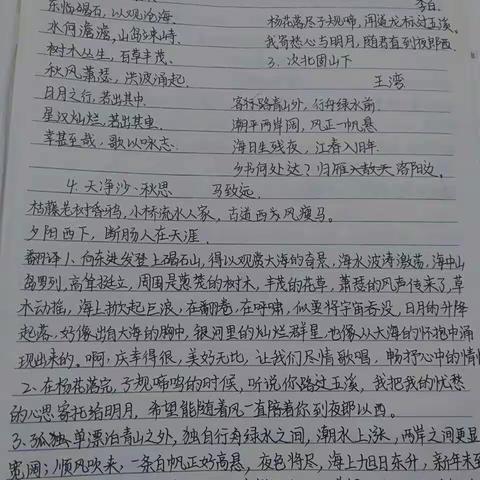 李白
东临碣石，以观沧海。
杨花落尽子规啼，闻道龙标过五溪。
水何澹澹，山岛竦峙。
我寄愁心与明月，随君直到夜郎西。
树木丛生，百草丰茂。
3. 次北固山下
秋风萧瑟，洪波涌起。
王湾
日月之行，若出其中。
客路青山外，行舟绿水前。
星汉灿烂，若出其里。
潮平两岸阔，风正一帆悬
幸甚至哉，歌以咏志。
海日生残夜，江春入旧年.
乡书何处达？归雁洛阳边。
4. 天净沙·秋思 马致远.
枯藤老树昏鸦，小桥流水人家，古道西风瘦马。
夕阳西下，断肠人在天涯.
翻译1、向东进发登上碣石山，得以观赏大海的奇景，海水波涛激荡，海中山
岛罗列，高耸挺立，周围是葱茏的树木，丰茂的花草，萧瑟的风声传来了，草
水动摇，海上掀起巨浪，在翻卷，在呼啸，似要将宇宙吞没，日月的升降
起落，好像出自大海的胸中，银河里的灿烂群星，也像从大海的怀抱中涌
现出来的。啊，庆幸得很，美好无比，让我们尽情歌唱，畅抒心中的情
2、在杨花落完，子规啼鸣的时候，听说你路过五溪，我把我的忧愁
的心思寄托给明月，希望能随着风一直陪着你到夜郎以西。
3、孤独单漂泊青山之外，独自行舟绿水之间，潮水上涨，两岸之间更显
宽阔；顺风吹来，一条白帆正好高悬，夜色将尽，海上旭日东升，新年未到